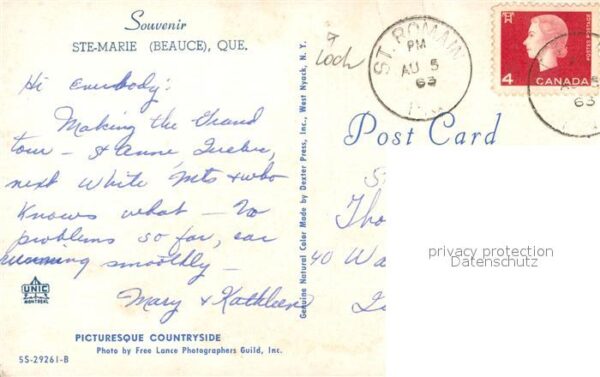 Souvenir
STE-MARIE (BEAUCE), QUE.
Hi Everbody:
Making the Grand
tour - St Anne Quebec,
next White Mts & who
Knows what - No
problems so far, car
running smoothly -
Mary & Kathleen
UNIC
MONTREAL
PICTURESQUE COUNTRYSIDE
Photo by Free Lance Photographers Guild, Inc.
5S-29261-B
Genuine Natural Color Made by Dexter Press, Inc., West Nyack, N. Y.
ST. ROMAIN
PM
AU 5
63
4
CANADA
63
Post Card
Tho
40 Wa
privacy protection
Datenschutz